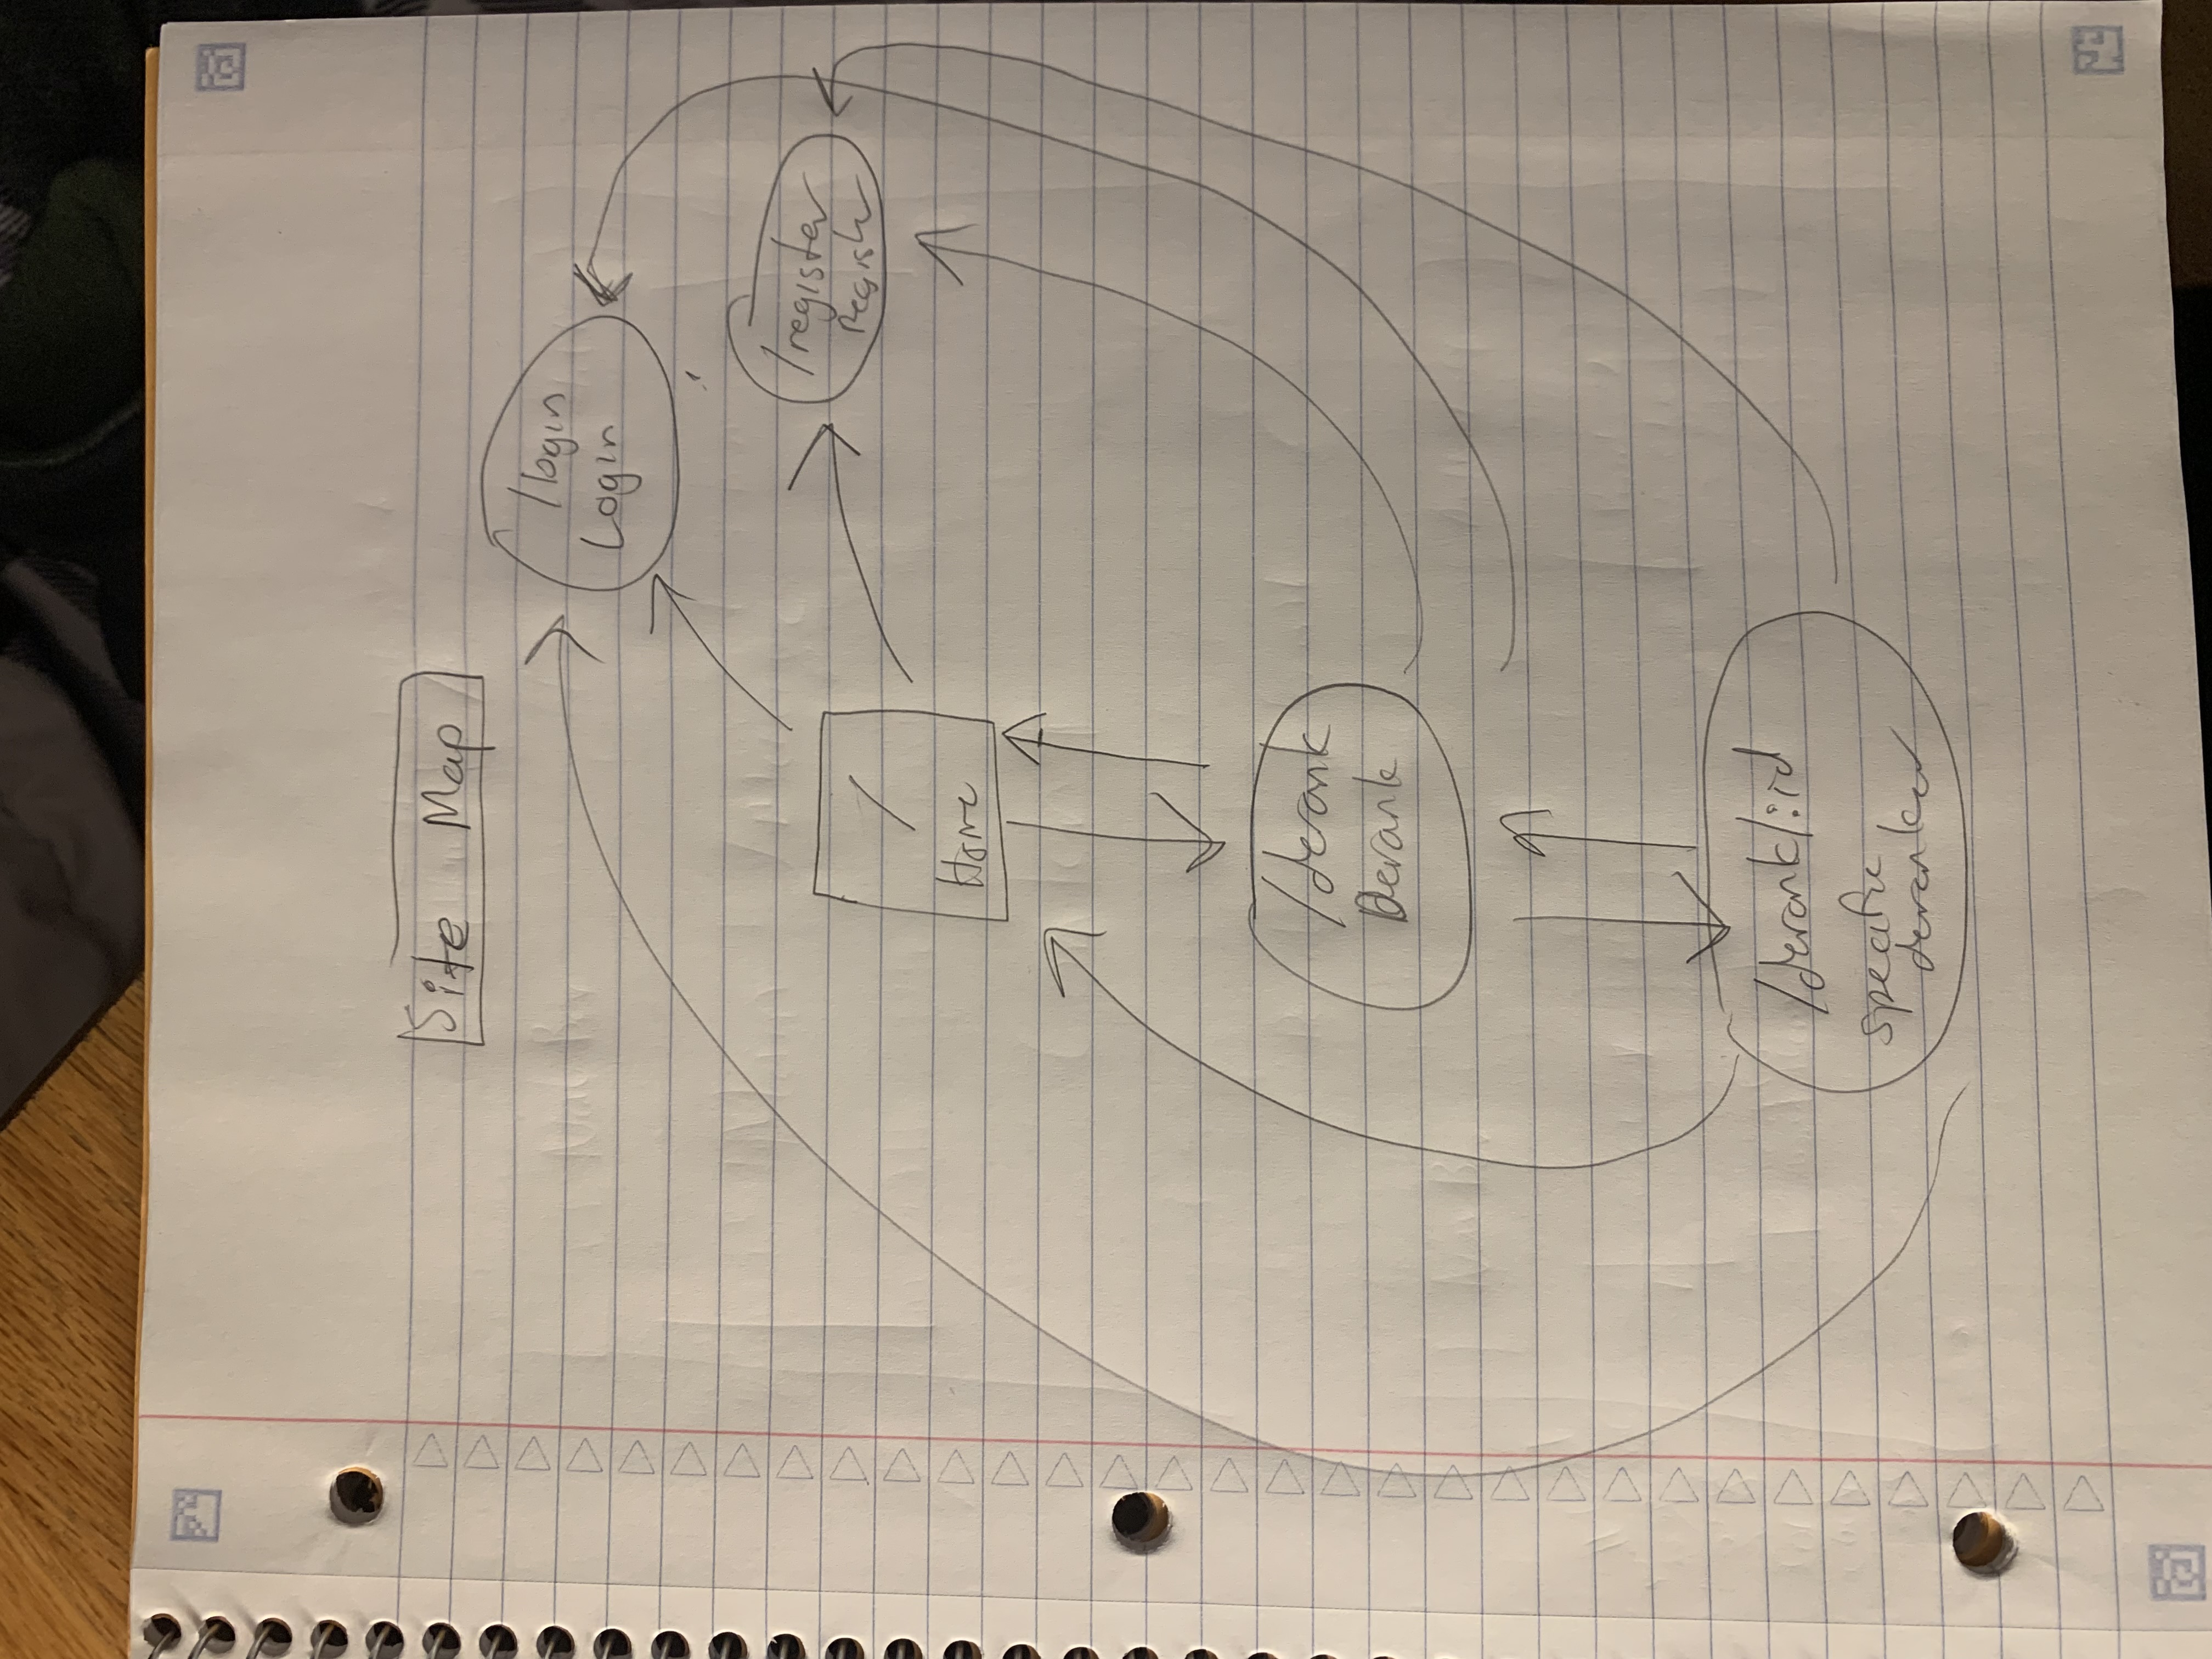 Site Map
/login
Login
/register
Register
/
Home
/derank
Derank
/derank/:id
specific
deranker